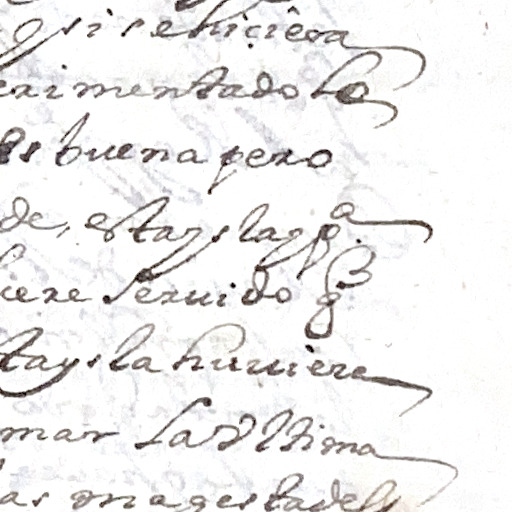 y si se hiciera
erimentado Lo
es buena pero
de, esta ysla y pa
iere seruido g
ta ysla huuiere
mar La Vltima
as magestades